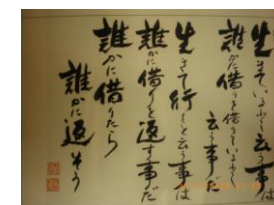 生きているということは
誰かに借りを借りているということ
云う事だ
生きて行くと云う事は
誰かに借りを返す事だ
誰かに借りたら
誰かに返そう